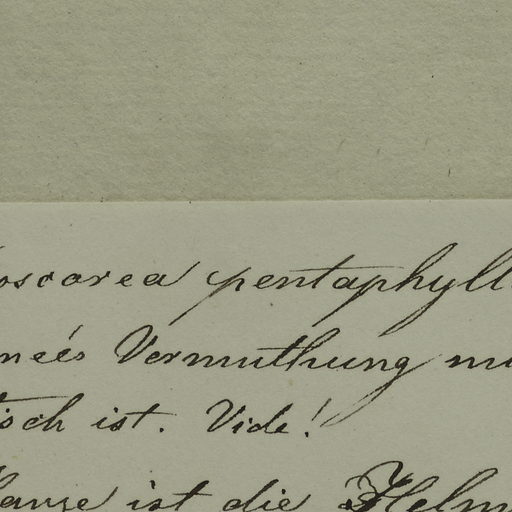 oscorea pentaphyll
neés Vermuthung m
isch ist. Vide!
lanze ist die Helm